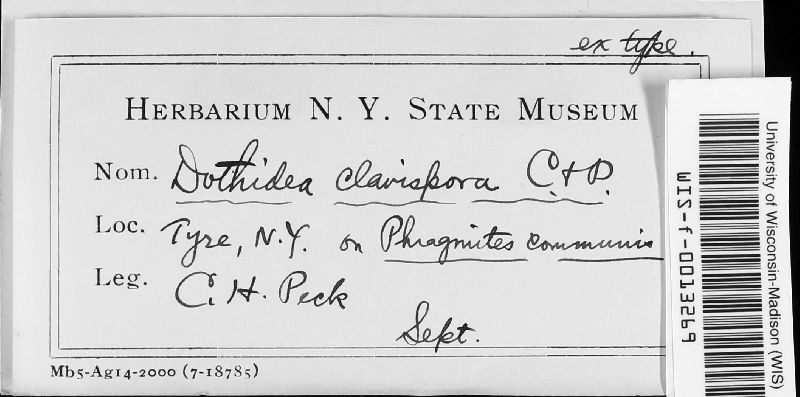 ex type.
HERBARIUM N. Y. STATE MUSEUM
Nom. Dothidea clavispora C & P.
Loc. Tyre, N.Y. on Phragmites communis
Leg. C. H. Peck
Sept.
Mb5-Ag14-2000 (7-18785)
University of Wisconsin-Madison (WIS)
WIS-f-0013269